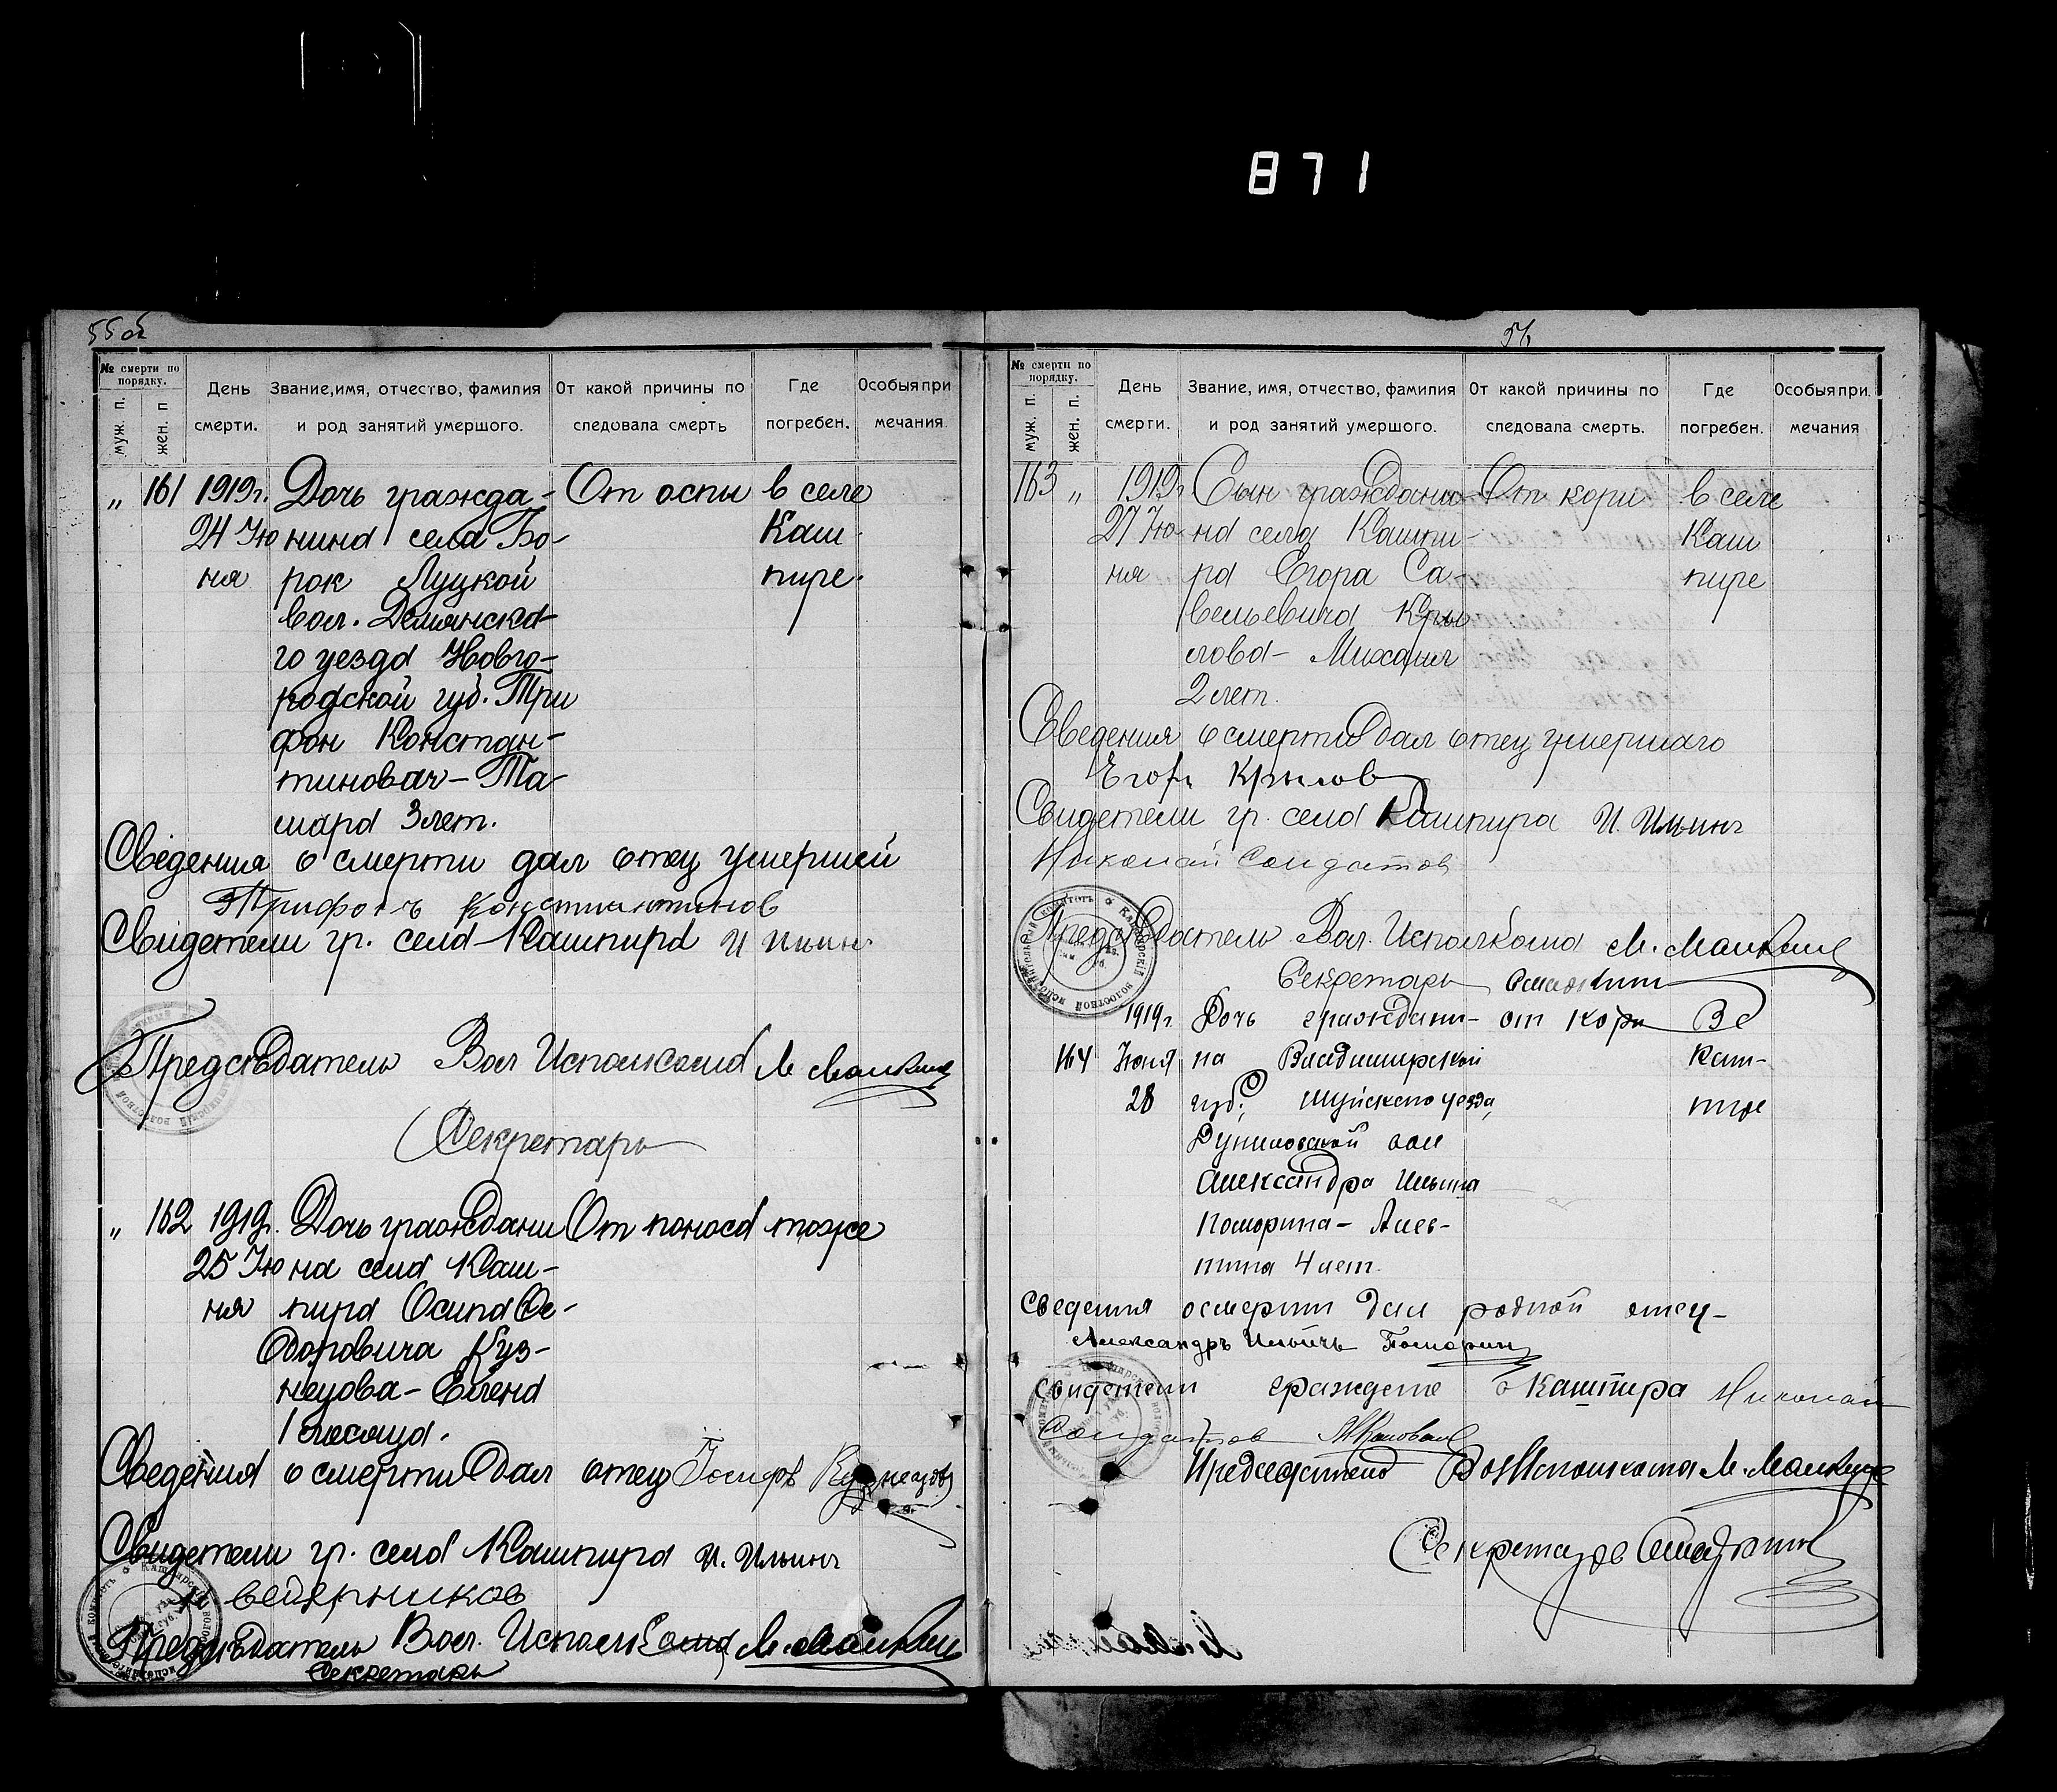 871
55 об
№ смерти по порядку.
муж. п.
жен. п
День смерти.
Звание, имя, отчество, фамилия и род занятий умершого.
От какой причины по следовала смерть
Где погребен.
Особыя при мечания.
„ 161 1919 г. Дочь гражда- От оспы в селе
24 Ию нина села Бо- Каш
ня рок Луцкой пире.
вол. Демянска-
го уезда Новго-
родской губ. Три
фон Констан-
тинович - Та-
мара 3 лет.
Сведения о смерти дал отец умершей
Трифонъ Константинов
Свидетели гр. села Кашпира И Ильин
Председатель Вол Исполкома М Малкин
Секретарь
„ 162 1919 г. Дочь граждани От поноса тоже
25 Ию на села Каш-
ня пира Осипа Фе-
доровича Куз-
нецова - Елена
1 месяца.
Сведения о смерти дал отец Кузнецовъ
Свидетели гр. села Кашпира И. Ильинъ
Ведерников
Председатель Вол. Исполкома М. Малкин
Секретарь
56
№ смерти по порядку.
муж. п.
жен. п.
День смерти.
Звание, имя, отчество, фамилия и род занятий умершого.
От какой причины по следовала смерть.
Где погребен.
Особыя при. мечания
163 „ 1919 г. Сын граждани- От кори в селе
27 Ию- на села Кашпи- Каш
ня ра Егора Са- пире
вельевича Кры
лова - Михаил
2 лет.
Сведения о смерти дал отец умершаго
Егоръ Крылов
Свидетели гр. села Кашпира И. Ильинъ
Николай Солдатов
Председатель Вол. Исполкома М. Малкин
Секретарь
1919 г. Дочь граждани- от кори В с
164 Июня на Владимирской Каш-
28 губ. Шуйского уезда, пире
Дуниловской вол
Александра Ильина
Поморина - Алев-
тина 4 лет.
Сведения о смерти дал родной отец -
Александръ Ильичъ Поморин
Свидетели граждане с Кашпира Николай
Солдатов
Председатель Вол Исполкома М. Малкин
Секретарь